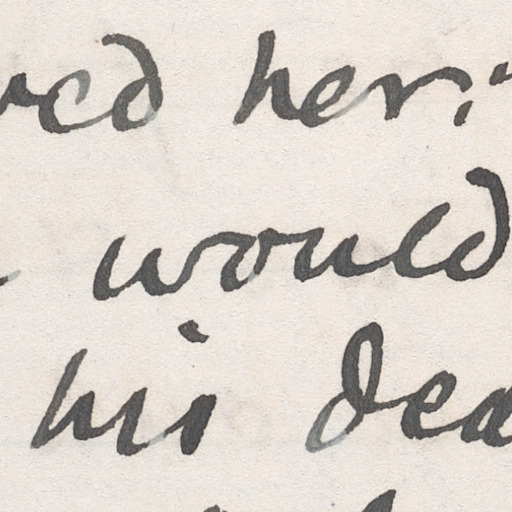 ved her:"
would
his dea